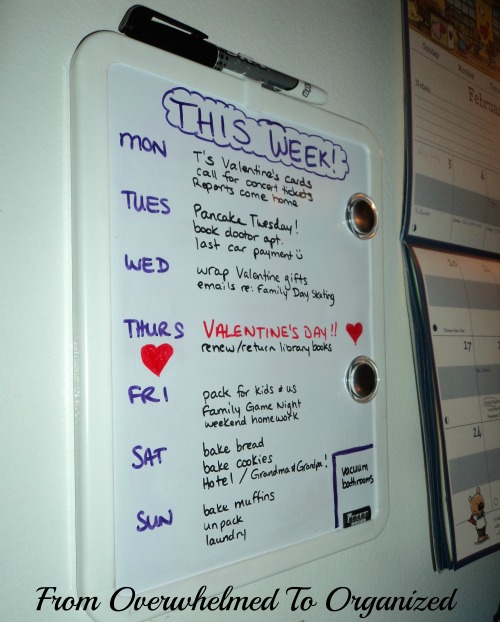 THIS WEEK!
MON
T's Valentine's cards
call for concert tickets
Reports come home
TUES
Pancake Tuesday!
book doctor apt.
last car payment
WED
wrap Valentine gifts
emails re: Family Day Skating
THURS
VALENTINE'S DAY!!
renew/return library books
FRI
pack for kids & us
Family Game Night
weekend homework
SAT
bake bread
bake cookies
Hotel / Grandma & Grandpa!
SUN
bake muffins
unpack
laundry
vacuum
bathrooms
Sunday
Monday
Notes
Februa
3
4
17
24
From Overwhelmed To Organized